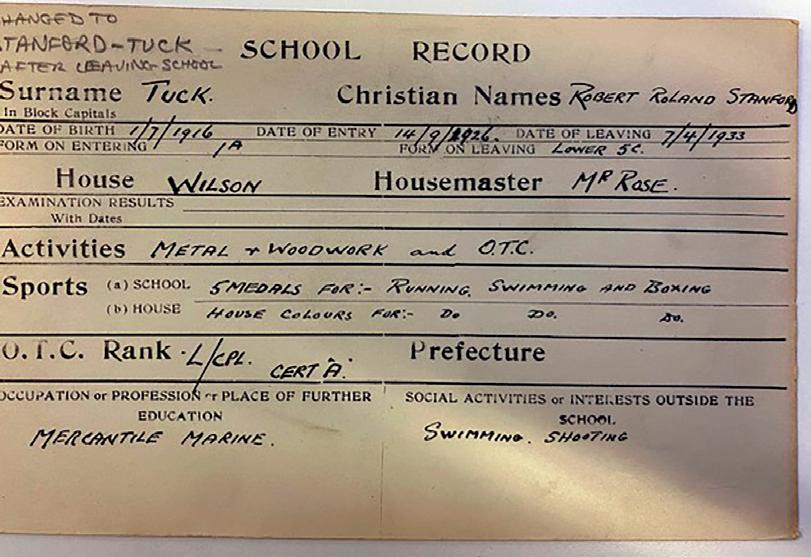 HANGED TO
TANFORD-TUCK
AFTER LEAVING SCHOOL
SCHOOL RECORD
Surname TUCK. Christian Names ROBERT ROLAND STANFORD
In Block Capitals
DATE OF BIRTH 1/7/1916 DATE OF ENTRY 14/9/1926. DATE OF LEAVING 7/4/1933
FORM ON ENTERING 1A FORM ON LEAVING LOWER 5C.
House WILSON Housemaster MR ROSE.
EXAMINATION RESULTS
With Dates
Activities METAL + WOODWORK and O.T.C.
Sports (a) SCHOOL 5 MEDALS FOR:- RUNNING, SWIMMING AND BOXING
(b) HOUSE HOUSE COLOURS FOR:- Do Do. Do.
O.T.C. Rank L/CPL. CERT "A". Prefecture
OCCUPATION or PROFESSION or PLACE OF FURTHER EDUCATION
MERCANTILE MARINE.
SOCIAL ACTIVITIES or INTERESTS OUTSIDE THE SCHOOL
SWIMMING. SHOOTING